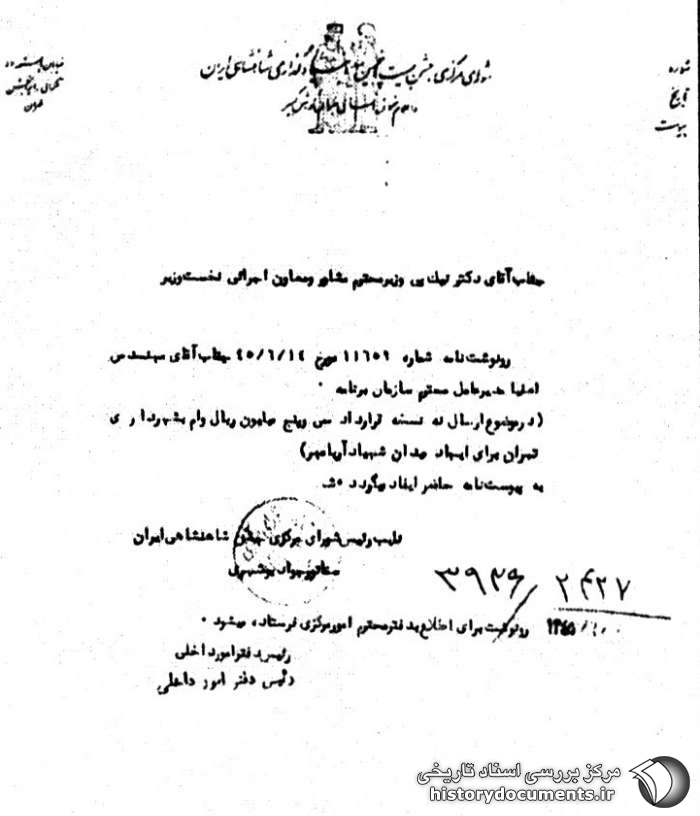 شورای مرکزی جشن بیست و پنجمین سده بنیانگذاری شاهنشاهی ایران
شماره
تاریخ
پیوست
تهران
جناب آقای دکتر نیک پی وزیر محترم مشاور و معاون اجرائی نخست‌وزیر
رونوشت نامه شماره ۱۱۶۵۹ مورخ ۴۵/۶/۱۴ جناب آقای مهندس
اصفیا مدیرعامل محترم سازمان برنامه ۰
(در موضوع ارسال نه نسخه قرارداد سی و پنج میلیون ریال وام بشهرداری
تهران برای ایجاد میدان شهیاد آریامهر)
به پیوست نامه حاضر ایفاد میگردد ۰ش
نایب رئیس شورای مرکزی جشن شاهنشاهی ایران
سناتور جواد بوشهری
۳۹۲۶ / ۲۴۲۷
۱۳۴۵
رونوشت برای اطلاع بدفتر محترم امور مرکزی فرستاده میشود ۰
رئیس دفتر امور داخلی
رئیس دفتر امور داخلی
مرکز بررسی اسناد تاریخی
historydocuments.ir